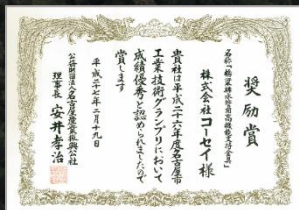 奨励賞
名称「橋梁排水管用高機能支持金具」
株式会社コーセイ様
貴社は平成二十六年度名古屋市
工業技術グランプリにおいて
成績優秀と認められましたので
賞します
平成二十七年二月十九日
公益財団法人名古屋産業振興公社
理事長 安井孝治